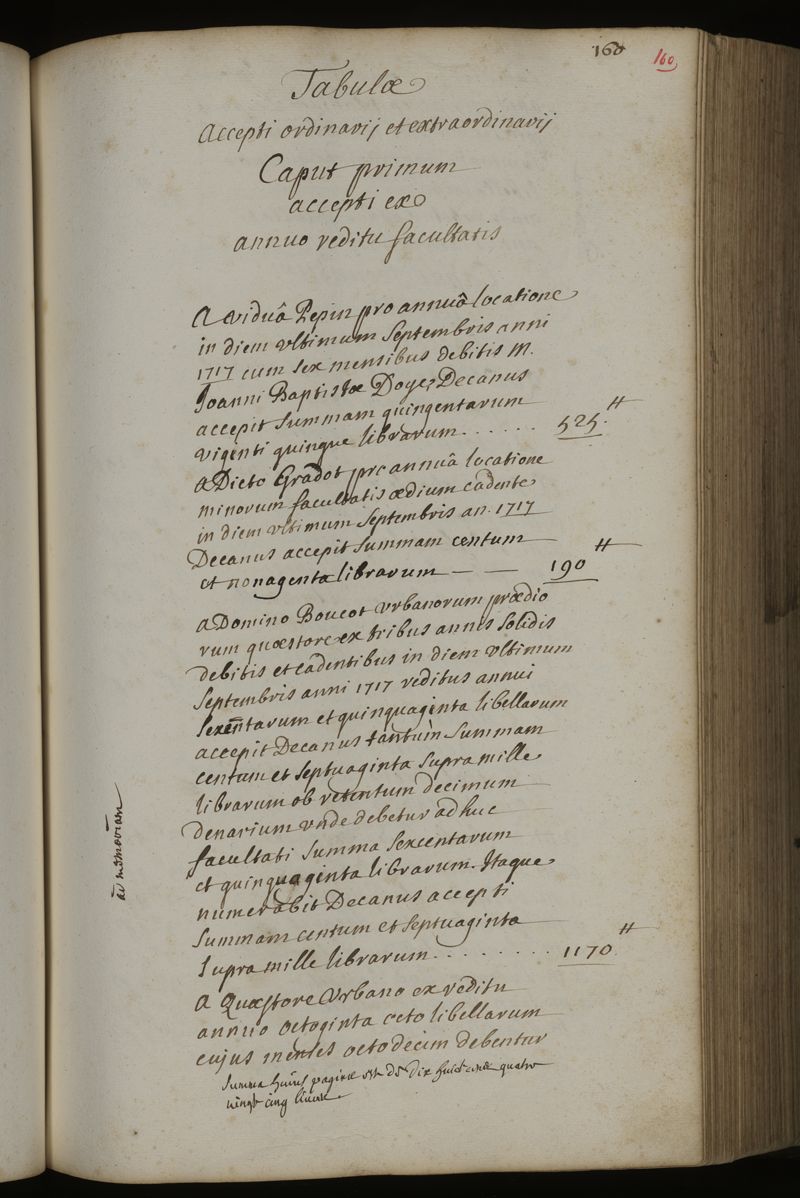 160 160
Tabulæ
Accepti ordinarij et extraordinarij
Caput primum
accepti ex
annuo reditu facultatis
A viduâ Pepin pro annuâ locatione
in diem vltimum Septembris anni
1717 cum sex mensibus debitis M.
Joanni Baptistæ Doye, Decanus
accepit summam quingentarum
viginti quinque librarum . . . . . . 525.ᴴ
A Dicto Gradot pro annuâ locatione
minorum facultatis ædium cadente
in diem vltimum Septembris an. 1717
Decanus accepit summam centum
et nonagenta librarum — — 190ᴴ
A Domino Boucot vrbanorum prædio
rum quæstore ex tribus annis solidis
debitis et cadentibus in diem vltimum
Septembris anni 1717 reditus annui
sexentarum et quinquaginta libellarum
accepit Decanus tantùm summam
centum et septuaginta supra mille
librarum ob retentum decimum
denarium vnde debetur adhuc
facultati summa sexcentarum
et quinquaginta librarum. Itaque
numerabit Decanus accepti
summam centum et septuaginta
supra mille librarum . . . . . . . . 1170.ᴴ
ad memoriam
A Quæstore Vrbano ex reditu
annuo octoginta octo libellarum
cujus menses octodecim debentur
summa huius paginæ est de dix huict cent quatre
vingt cinq liures.